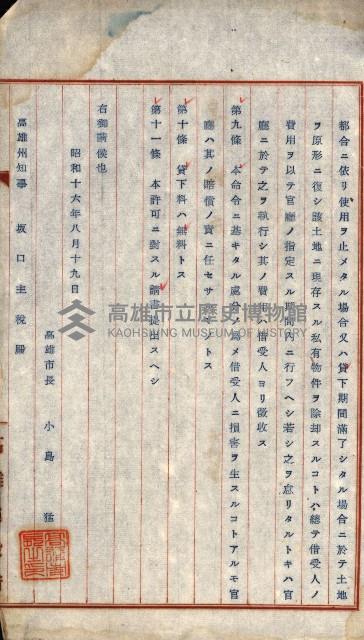 都合ニ依リ使用ヲ止メタル場合又ハ貸下期間滿了シタル場合ニ於テ土地
ヲ原形ニ復シ該土地ニ現存スル私有物件ヲ除却スルコトハ總テ借受人ノ
費用ヲ以テ官廳ノ指定スル期間內ニ行フヘシ若シ之ヲ怠リタルトキハ官
廳ニ於テ之ヲ執行シ其ノ費用ハ借受人ヨリ徵收ス
第九條 本命令ニ基キタル處分ノ爲メ借受人ニ損害ヲ生スルコトアルモ官
廳ハ其ノ賠償ノ責ニ任セサルモノトス
第十條 貸下料ハ無料トス
第十一條 本許可ニ對スル請書提出スヘシ
右御請候也
昭和十六年八月十九日
高雄市長 小島 猛
高雄州知事 坂口主稅殿
高雄市立歷史博物館
KAOHSIUNG MUSEUM OF HISTORY